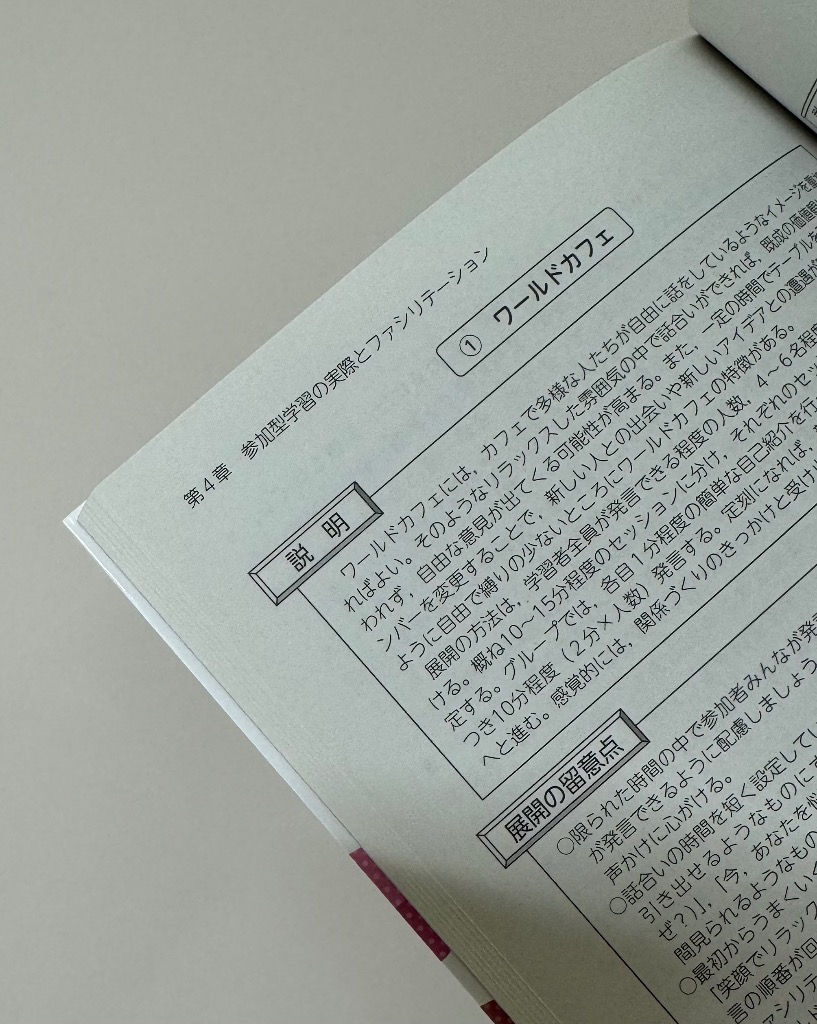 第4章 参加型学習の実際とファシリテーション
① ワールドカフェ
説 明
ワールドカフェには，カフェで多様な人たちが自由に話をしているようなイメージを
ればよい。そのようなリラックスした雰囲気の中で話合いができれば，既成の価値
われず，自由な意見が出てくる可能性が高まる。また，一定の時間でテーブルを
ンバーを変更することで，新しい人との出会いや新しいアイデアとの遭遇が
ように自由で縛りの少ないところにワールドカフェの特徴がある。
展開の方法は，学習者全員が発言できる程度の人数，4～6名程度
ける。概ね10～15分程度のセッションに分け，それぞれのセッ
定する。グループでは，各自1分程度の簡単な自己紹介を行
つき10分程度（2分×人数）発言する。定刻になれば，
へと進む。感覚的には，関係づくりのきっかけと受け
展開の留意点
○限られた時間の中で参加者みんなが発
が発言できるように配慮しましょう
声かけに心がける。
○話合いの時間を短く設定してい
引き出せるようなものに
ぜ？）」，「今，あなたを
間見られるようなもの
○最初からうまくいく
「笑顔でリラック
言の順番が回
ァシリテ